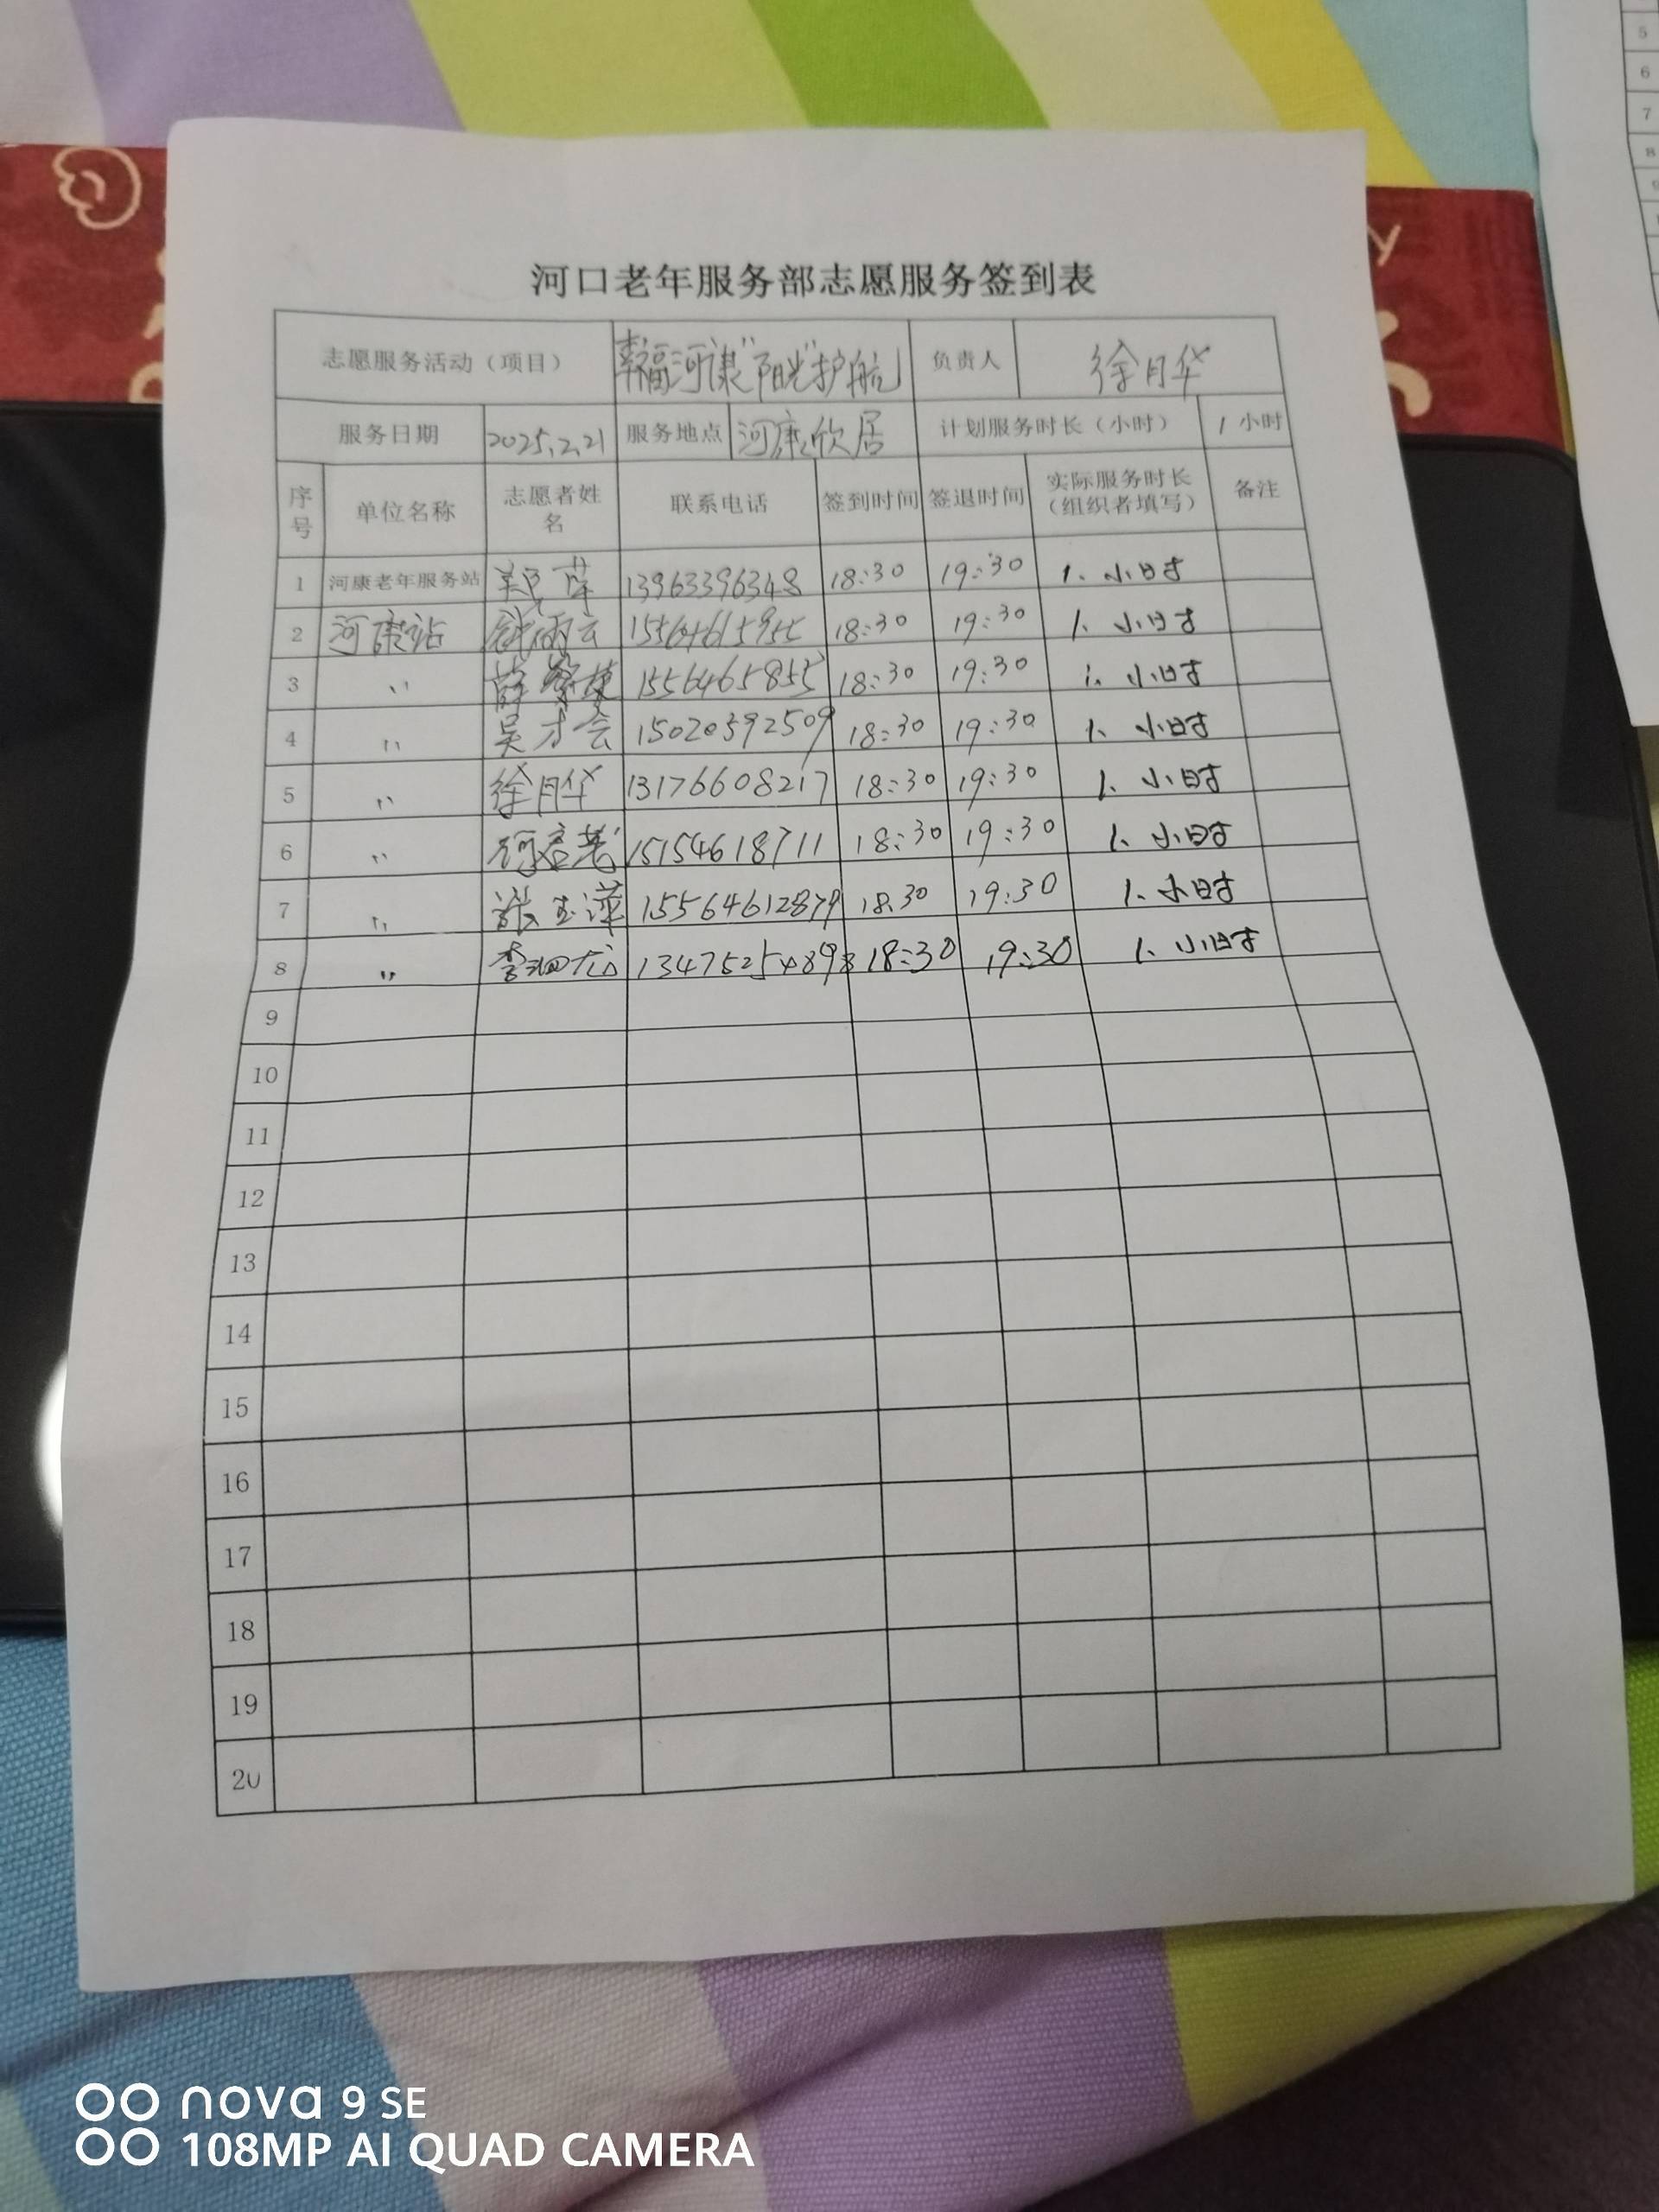 河口老年服务部志愿服务签到表
志愿服务活动（项目） 幸福河康"阳光"护航 负责人 徐月华
服务日期 2025.2.21 服务地点 河康欣居 计划服务时长（小时） 1小时
序号 单位名称 志愿者姓名 联系电话 签到时间 签退时间 实际服务时长（组织者填写） 备注
1 河康老年服务站 13963396348 18:30 19:30 1、小时
2 河康站 18:30 19:30 1、小时
3 〃 薛 1556465855 18:30 19:30 1、小时
4 〃 吴才会 15020592509 18:30 19:30 1、小时
5 〃 徐月华 13176608217 18:30 19:30 1、小时
6 〃 15154618711 18:30 19:30 1、小时
7 〃 张玉萍 15564612879 18:30 19:30 1、小时
8 〃 李 18:30 19:30 1、小时
9
10
11
12
13
14
15
16
17
18
19
20
5
6
7
8
nova 9 SE
108MP AI QUAD CAMERA